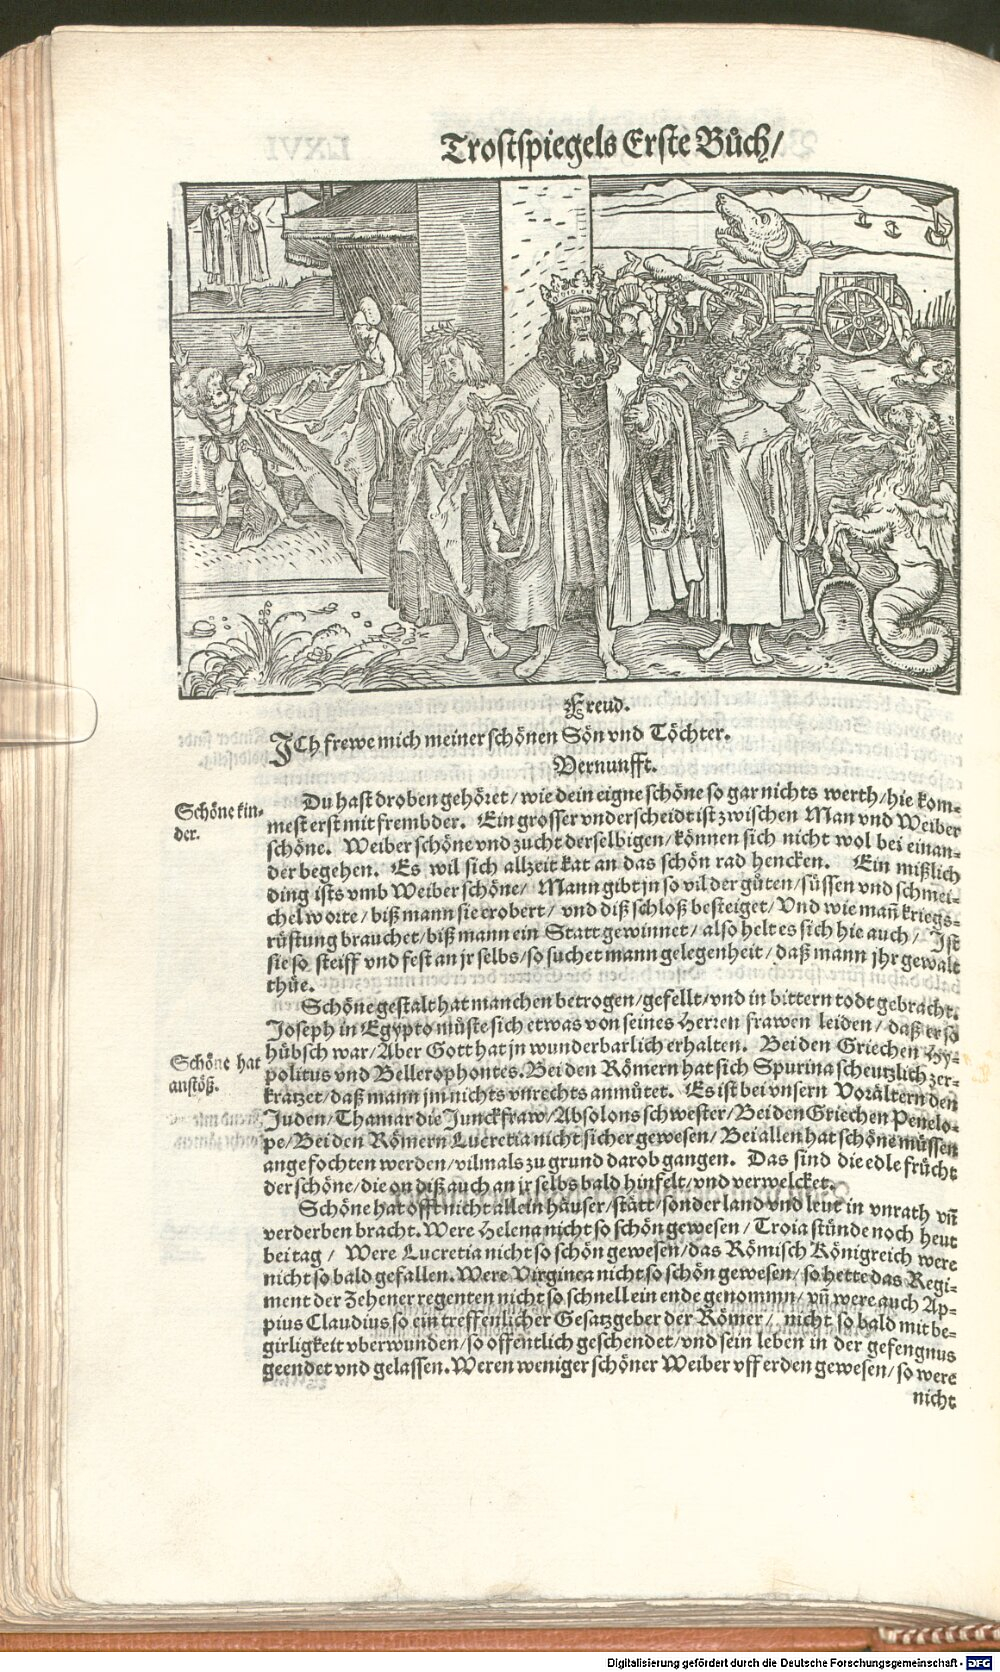 Trostspiegels Erste Bůch/
Freud.
ICh frewe mich meiner schönen Sön vnd Töchter.
Vernunfft.
Schöne kin-
der.
Du hast droben gehöret/ wie dein eigne schöne so gar nichts werth/ hie kom-
mest erst mit frembder. Ein grosser vnderscheidt ist zwischen Man vnd Weiber
schöne. Weiber schöne vnd zucht derselbigen/ können sich nicht wol bei einan-
der begehen. Es wil sich allzeit kat an das schön rad hencken. Ein mißlich
ding ists vmb Weiber schöne/ Mann gibt jn so vil der gůten/ süssen vnd schmei-
chel worte/ biß mann sie erobert/ vnd diß schloß besteiget/ Vnd wie mañ kriegs-
rüstung brauchet/ biß mann ein Statt gewinnet/ also helt es sich hie auch/ Ist
sie so steiff vnd fest an jr selbs/ so suchet mann gelegenheit/ daß mann jhr gewalt
thüe.
Schöne gestalt hat manchen betrogen/ gefellt/ vnd in bittern todt gebracht.
Joseph in Egypto můste sich etwas von seines Herren frawen leiden/ daß er so
hübsch war/ Aber Gott hat jn wunderbarlich erhalten. Bei den Griechen Hy-
Schöne hat
anstöß.
politus vnd Bellerophontes. Bei den Römern hat sich Spurina scheutzlich zer-
kratzet/ daß mann jm nichts vnrechts anmůtet. Es ist bei vnsern Vorältern den
Juden/ Thamar die Junckfraw/ Absolons schwester/ Bei den Griechen Penelo-
pe/ Bei den Römern Lucretia nicht sicher gewesen/ Bei allen hat schöne müssen
angefochten werden/ vilmals zu grund darob gangen. Das sind die edle frücht
der schöne/ die on diß auch an jr selbs bald hinfelt/ vnd verwelcket.
Schöne hat offt nicht allein häuser/ stätt/ sonder land vnd leut in vnrath vñ
verderben bracht. Were Helena nicht so schön gewesen/ Troia stünde noch heut
bei tag/ Were Lucretia nicht so schön gewesen/ das Römisch Königreich were
nicht so bald gefallen. Were Virginea nicht so schön gewesen/ so hette das Regi-
ment der Zehener regenten nicht so schnell ein ende genommn/ vñ were auch Ap-
pius Claudius so ein treffenlicher Gesatzgeber der Römer/ nicht so bald mit be-
girligkeit vberwunden/ so offentlich geschendet/ vnd sein leben in der gefengnus
geendet vnd gelassen. Weren weniger schöner Weiber vff erden gewesen/ so were
nicht
Digitalisierung gefördert durch die Deutsche Forschungsgemeinschaft - DFG